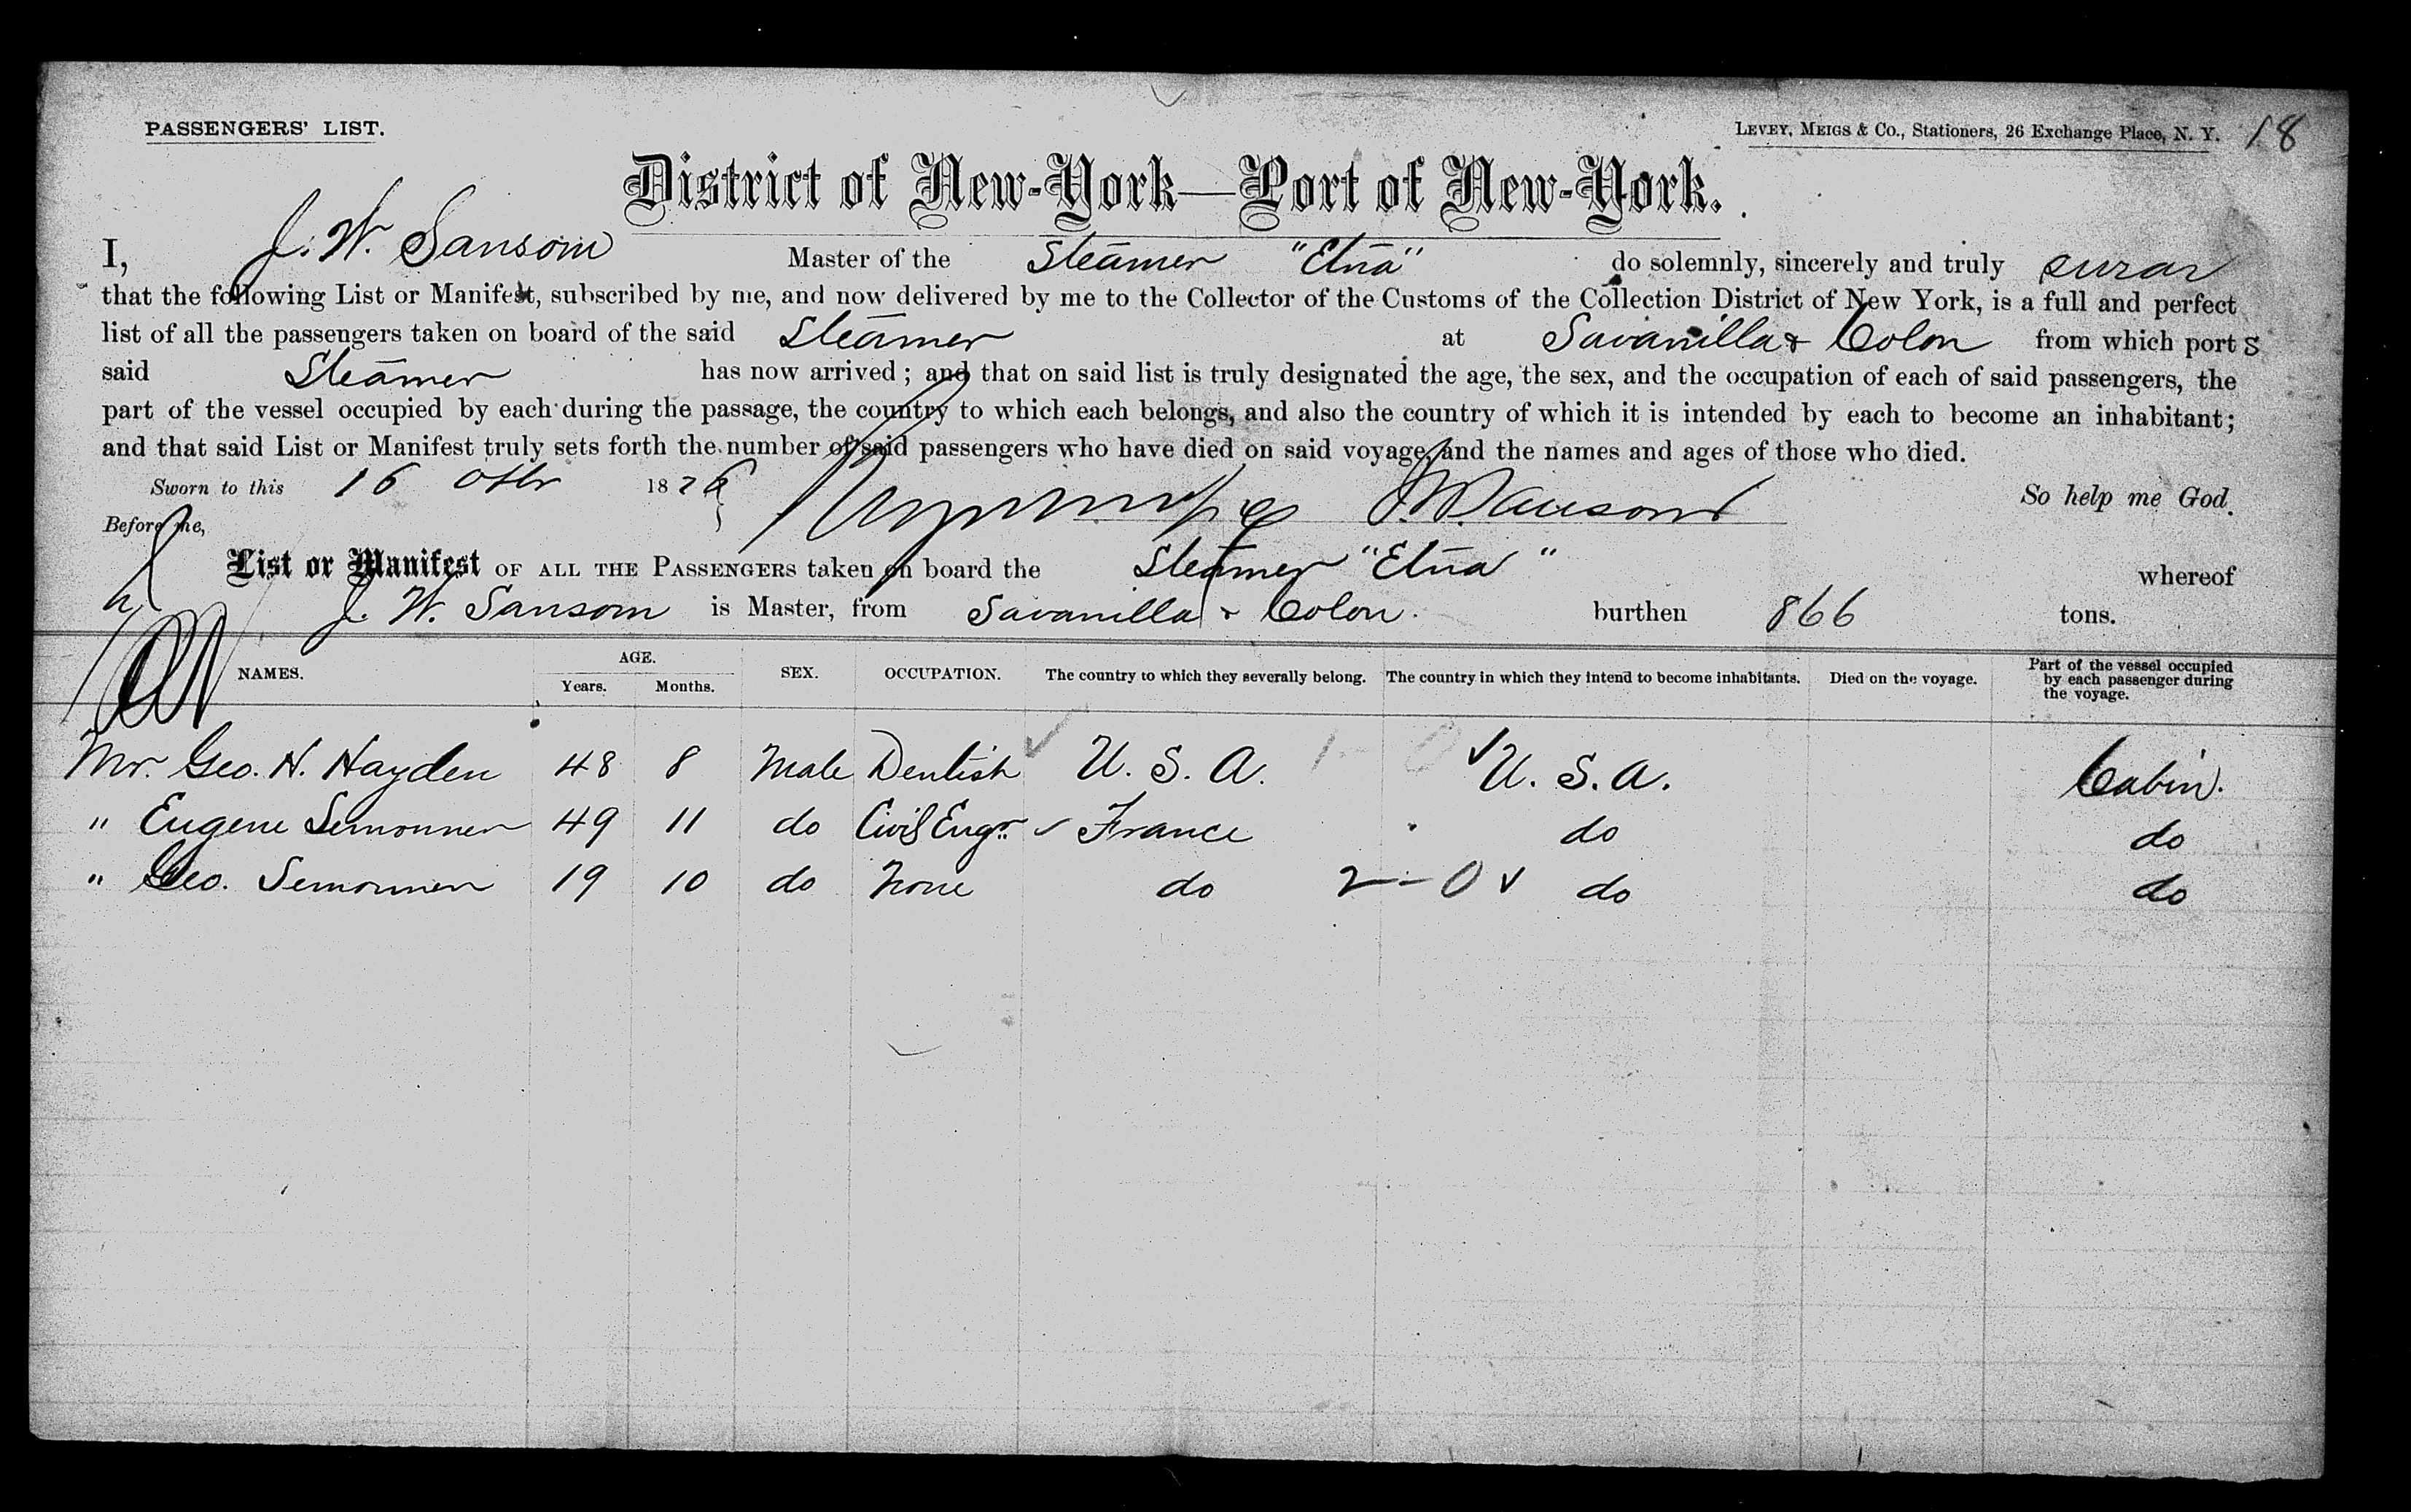 PASSENGERS' LIST.
LEVEY, MEIGS & Co., Stationers, 26 Exchange Place, N. Y. 18
District of New-York—Port of New-York.
I, J. W. Sansom Master of the Steamer "Etna" do solemnly, sincerely and truly swear
that the following List or Manifest, subscribed by me, and now delivered by me to the Collector of the Customs of the Collection District of New York, is a full and perfect
list of all the passengers taken on board of the said Steamer at Savanilla & Colon from which ports
said Steamer has now arrived; and that on said list is truly designated the age, the sex, and the occupation of each of said passengers, the
part of the vessel occupied by each during the passage, the country to which each belongs, and also the country of which it is intended by each to become an inhabitant;
and that said List or Manifest truly sets forth the number of said passengers who have died on said voyage, and the names and ages of those who died.
Sworn to this 16 1876 J. W. Sansom So help me God.
Before me,
List or Manifest OF ALL THE PASSENGERS taken on board the Steamer "Etna" whereof
J. W. Sansom is Master, from Savanilla & Colon. burthen 866 tons.
NAMES. AGE. Years. Months. SEX. OCCUPATION. The country to which they severally belong. The country in which they intend to become inhabitants. Died on the voyage. Part of the vessel occupied by each passenger during the voyage.
Mr. Geo. H. Hayden 48 8 Male Dentist U. S. A. 1 - 0 U. S. A. Cabin.
" Eugene 49 11 do Civil Engr. France do do
" Geo. 19 10 do None do 2 - 0 do do